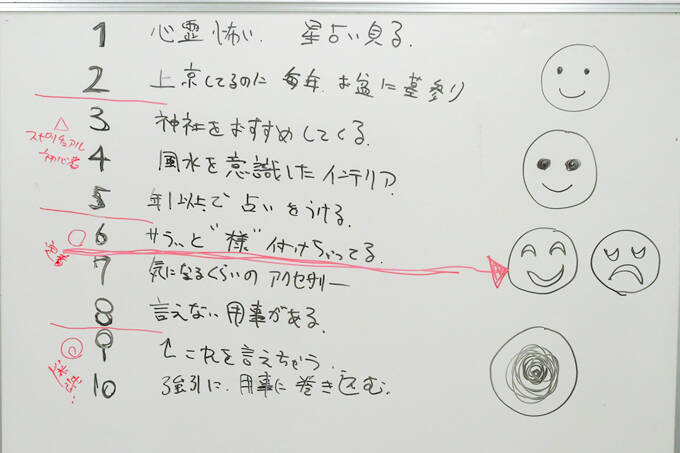 1 心霊怖い. 星占い見る.
2 上京してるのに 毎年. お盆に墓参り
3 神社をおすすめしてくる.
△ スピリチュアル 初心者
4 風水を意識したインテリア.
5 年1以上で占いをうける.
6 サラッと"様"付けちゃってる.
7 気になるくらいのアクセサリー
8 言えない用事がある.
9 ↑これを言えちゃう.
10 強引に、用事に巻き込む.